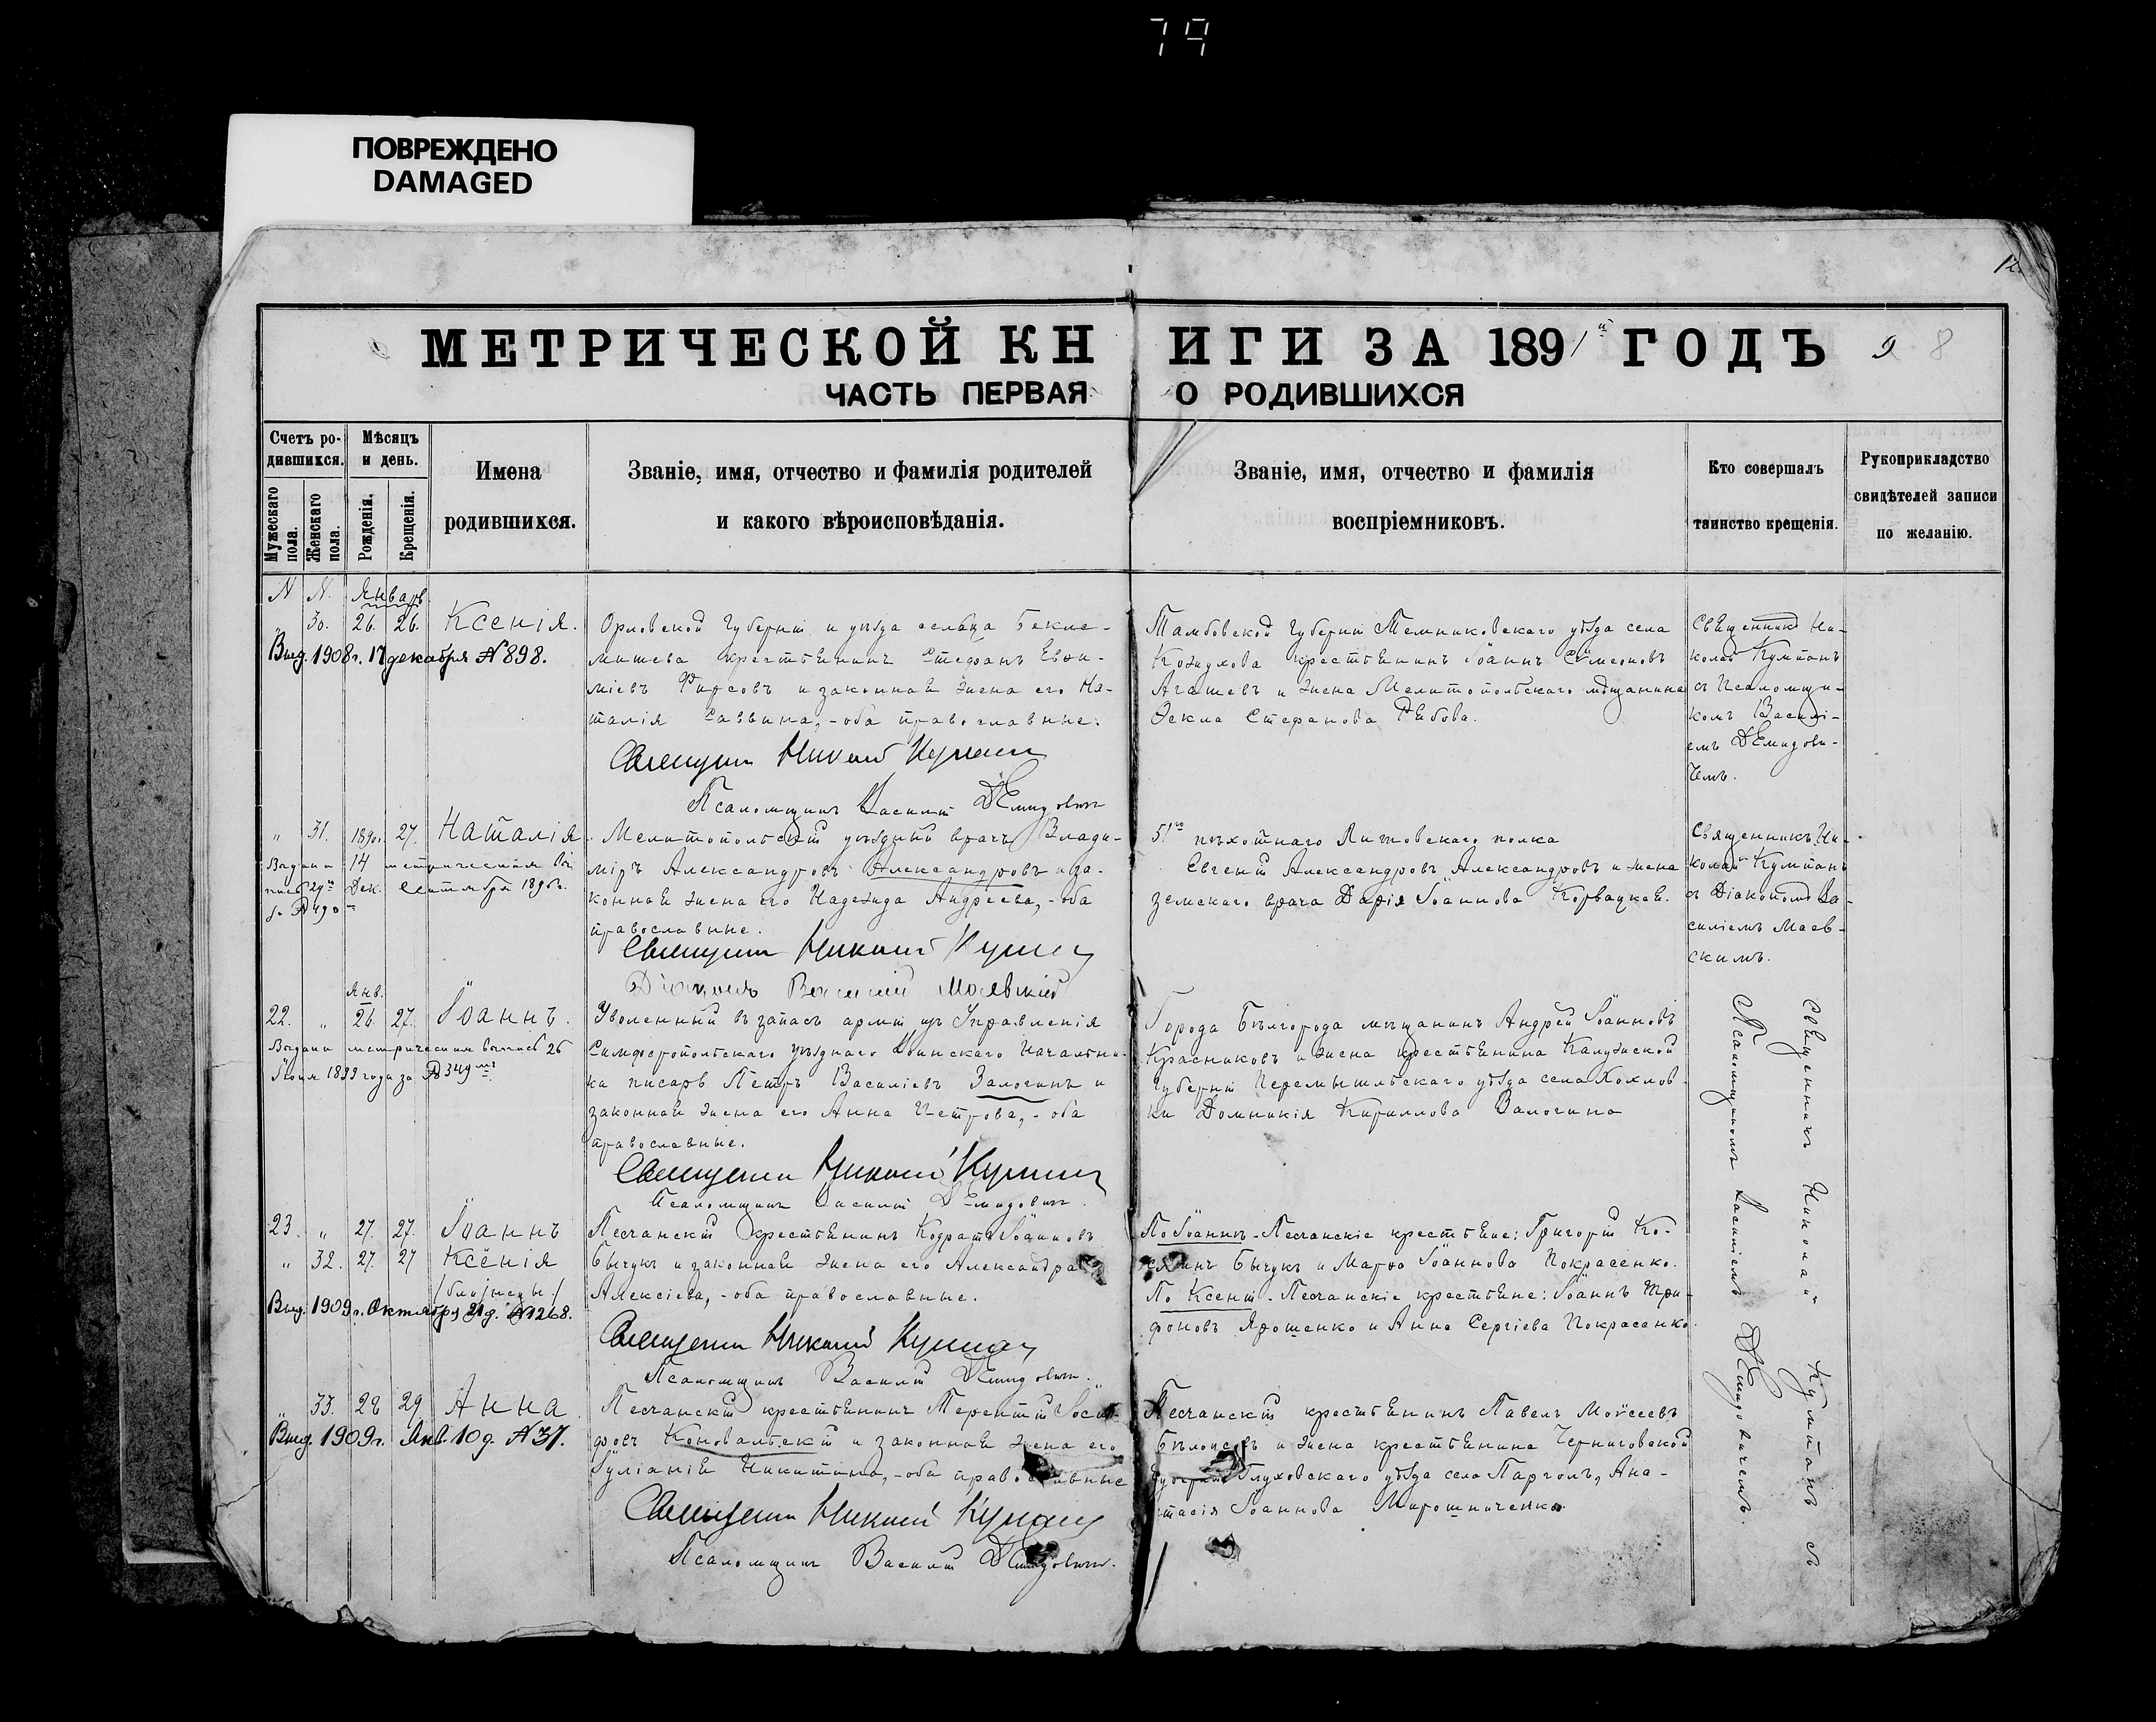 79
ПОВРЕЖДЕНО
DAMAGED
12
МЕТРИЧЕСКОЙ КНИГИ ЗА 1891й ГОДЪ 9 8
ЧАСТЬ ПЕРВАЯ О РОДИВШИХСЯ
Счетъ ро-
дившихся.
Мужескаго
пола.
Женскаго
пола.
Мѣсяцъ
и день.
Рожденія.
Крещенія.
Имена
родившихся.
Званіе, имя, отчество и фамилія родителей
и какого вѣроисповѣданія.
Званіе, имя, отчество и фамилія
воспріемниковъ.
Кто совершалъ
таинство крещенія.
Рукоприкладство
свидѣтелей записи
по желанію.
N N. Январь
" 30. 26. 26. Ксенія.
Выд. 1908 г. 17 декабря № 898.
Орловской губерніи и уѣзда сельца Бекле-
мишева крестьянинъ Стефанъ Евѳи-
міевъ Фирсовъ и законная жена его На-
талія Саввина, - оба православные.
Священникъ Николай Кумпанъ
Псаломщикъ Василій Демидовичъ
Тамбовской губерніи Темниковскаго уѣзда села
Кожухова крестьянинъ Іоаннъ Симеоновъ
Агашевъ и жена Мелитопольскаго мѣщанина
Ѳекла Стефанова Рябова.
Священникъ Ни-
колай Кумпанъ
съ Псаломщи-
комъ Василі-
емъ Демидови-
чемъ.
" 31. 1890г. 27. Наталія
14
Дек.
Выдана метрическая вы-
пись 29го Сентября 1896 г.
за № 490
Мелитопольскій уѣздный врачъ Влади-
міръ Александровъ Александровъ и за-
конная жена его Надежда Андреева, - оба
православные.
Священникъ Николай Кумпанъ
Діаконъ Василій Маевскій
51го пѣхотнаго Литовскаго полка
Евгеній Александровъ Александровъ и жена
земскаго врача Дарія Іоаннова Корвацкая.
Священникъ Ни-
колай Кумпанъ
съ Діакономъ Ва-
силіемъ Маев-
скимъ.
Янв.
22. " 26. 27. Іоаннъ.
Выдана метрическая выпись 26
Іюня 1899 года за № 349мъ
Уволенный въ запасъ арміи изъ Управленія
Симферопольскаго уѣзднаго Воинскаго Начальни-
ка писарь Петръ Василіевъ Залогинъ и
законная жена его Анна Петрова, - оба
православные.
Священникъ Николай Кумпанъ
Псаломщикъ Василій Демидовичъ.
Города Бѣлгорода мѣщанинъ Андрей Іоанновъ
Красниковъ и жена крестьянина Калужской
Губерніи Перемышльскаго уѣзда села Хохлов-
ки Домникія Кириллова Залогина
23. " 27. 27. Іоаннъ
" 32. 27. 27 Ксенія
/близнецы/
Выд. 1909 г. Октября 21 д. № 1268.
Песчанскій крестьянинъ Кодратъ Іоанновъ
Бычукъ и законная жена его Александра
Алексіева, - оба православные.
Священникъ Николай Кумпанъ
Псаломщикъ Василій Демидовичъ.
По Іоаннѣ - Песчанскіе крестьяне: Григорій Ко-
Бычукъ и Марѳа Іоаннова Покрасенко.
По Ксеніи - Песчанскіе крестьяне: Іоаннъ Три-
фоновъ Ярошенко и Анна Сергіева Покрасенко.
" 33. 28 29 Анна
Выд. 1909 г. Янв. 10 д. № 37.
Песчанскій крестьянинъ Терентій Іоси-
фовъ Коновальскій и законная жена его
Іуліанія Никитина, - оба православные
Священникъ Николай Кумпанъ
Псаломщикъ Василій Демидовичъ.
Песчанскій крестьянинъ Павелъ Моѵсеевъ
и жена крестьянина Черниговской
губерніи Глуховскаго уѣзда села Ана-
стасія Іоаннова Мирошниченко.
Священникъ Николай Кумпанъ съ
Псаломщикомъ Василіемъ Демидовичемъ.